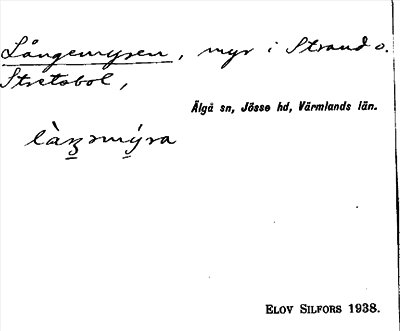 Långemyren, myr i Strand o.
Stretsbol,
Älgå sn, Jösse hd, Värmlands län.
làŋ̱əmý̱ra
ELOV SILFORS 1938.